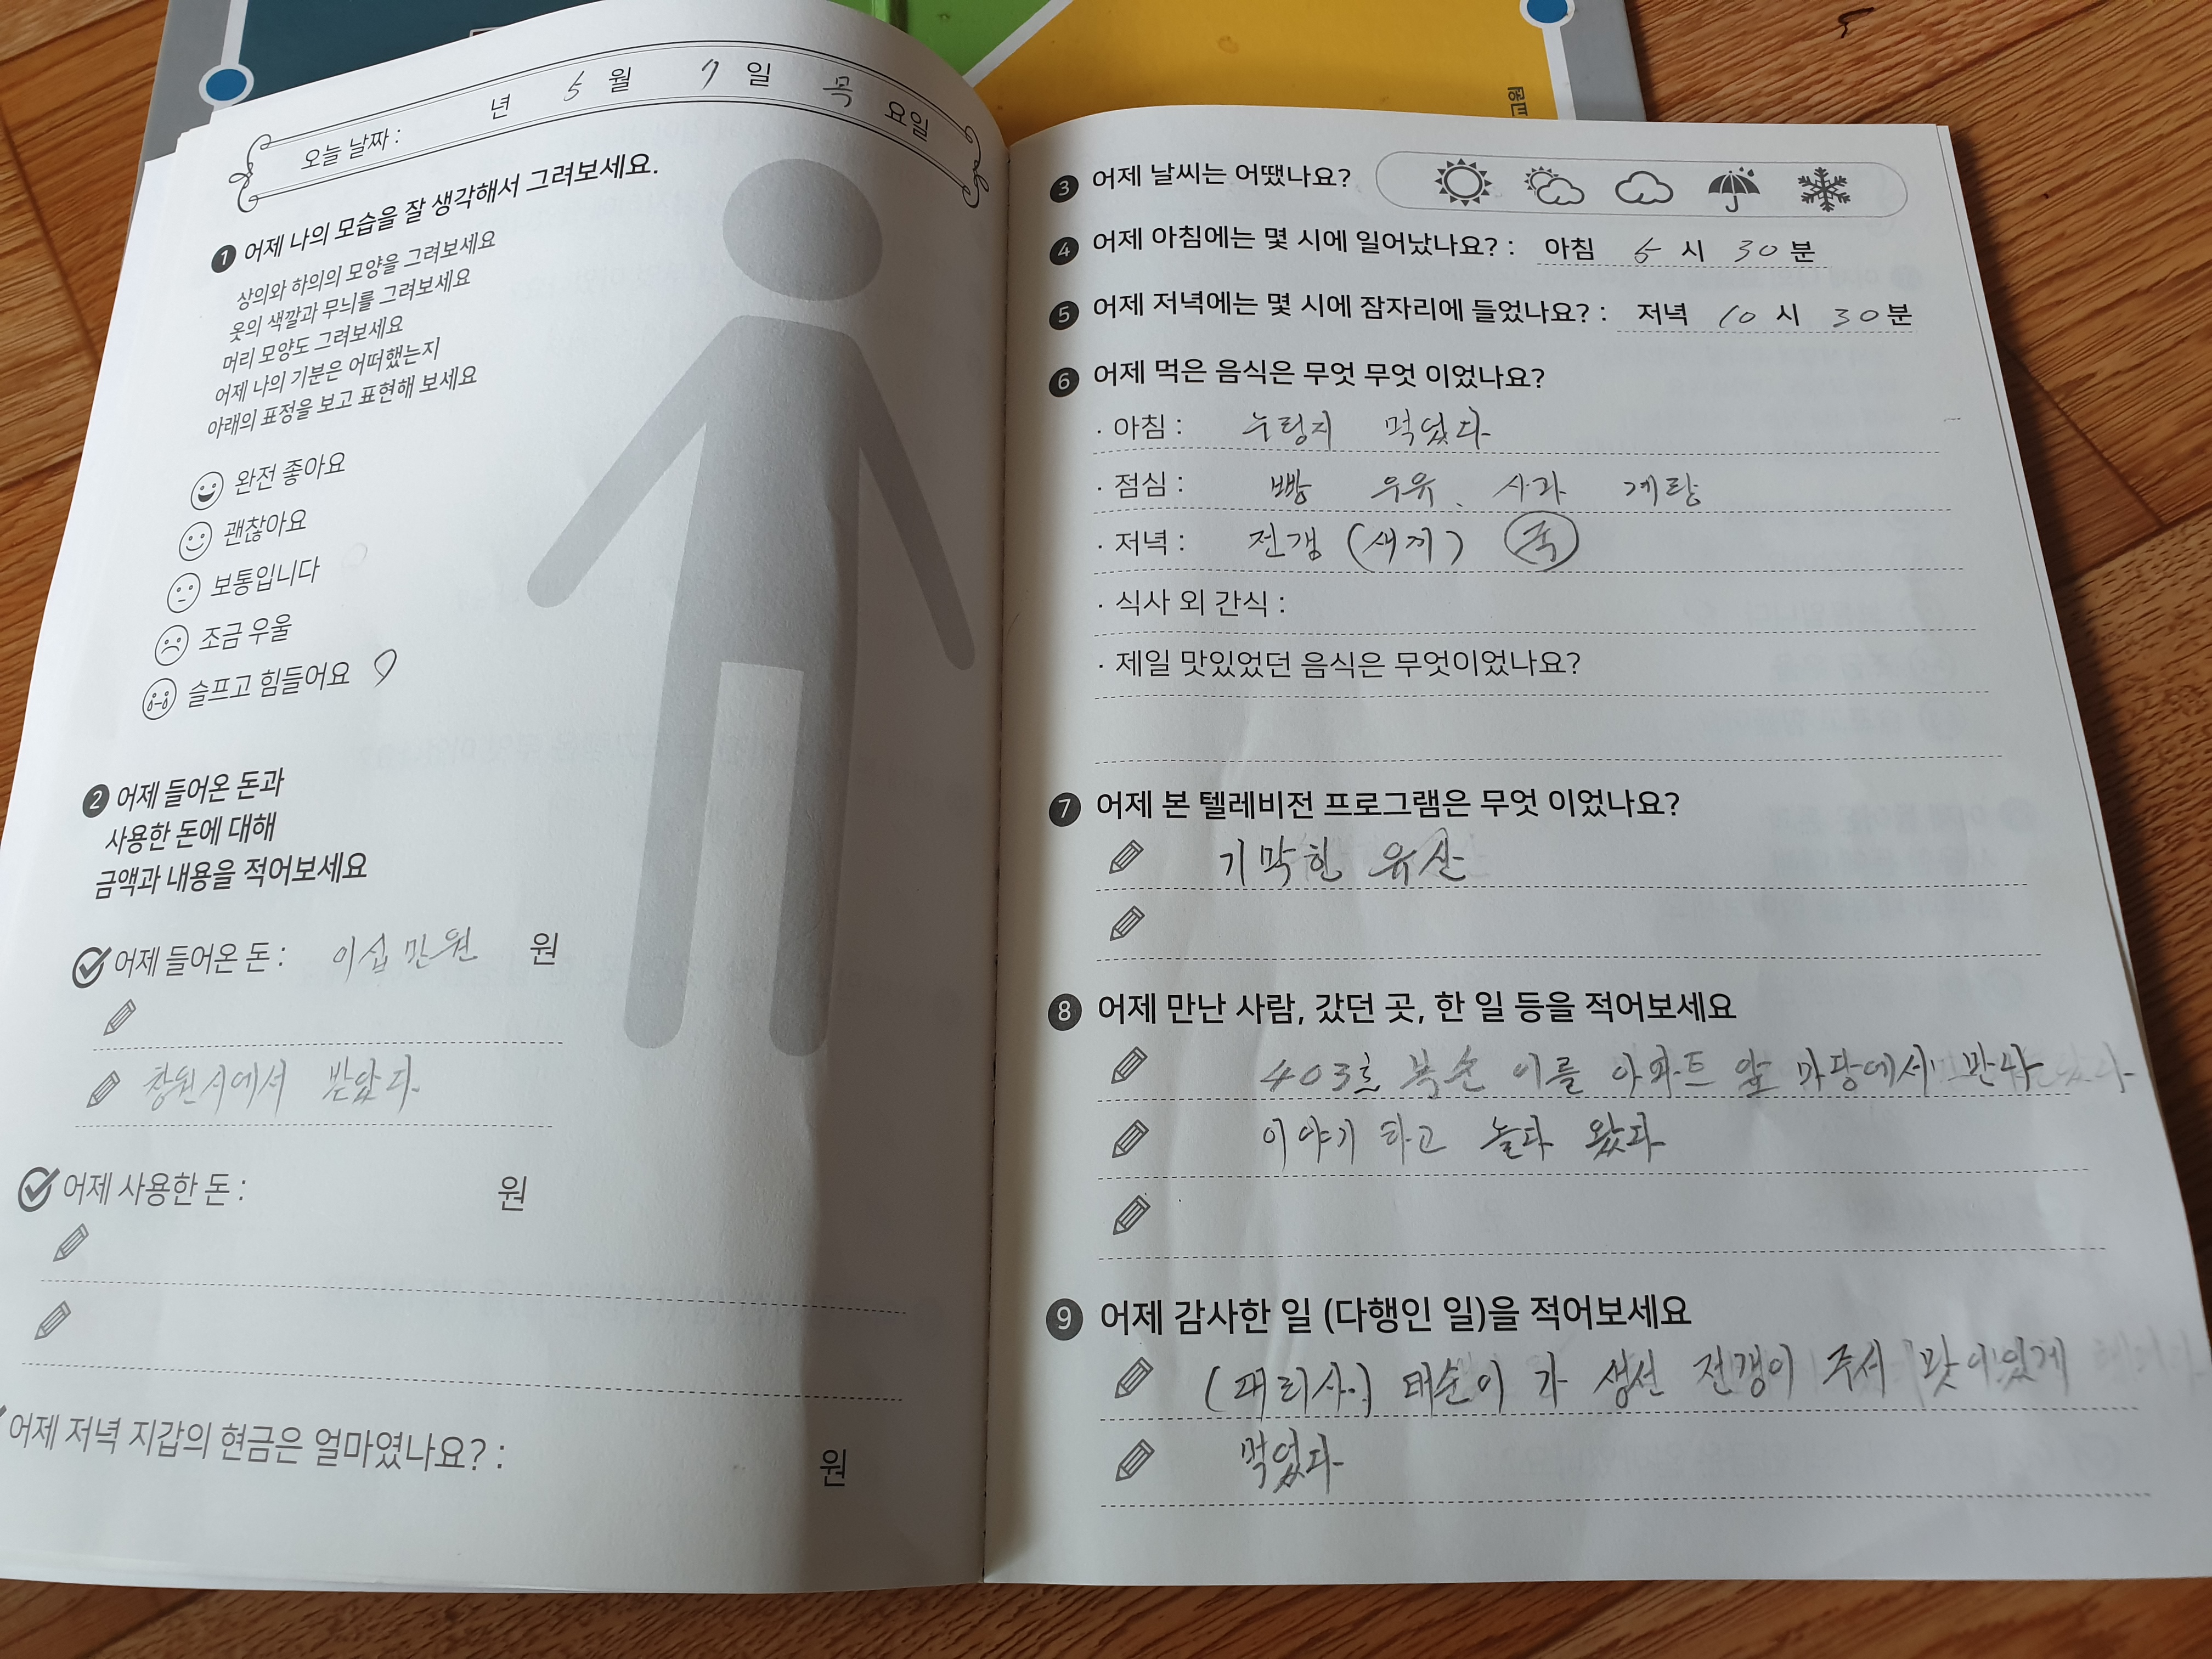 오늘 날짜 : 년 5 월 7 일 목 요일
1 어제 나의 모습을 잘 생각해서 그려보세요.
상의와 하의의 모양을 그려보세요
옷의 색깔과 무늬를 그려보세요
머리 모양도 그려보세요
어제 나의 기분은 어떠했는지
아래의 표정을 보고 표현해 보세요
완전 좋아요
괜찮아요
보통입니다
조금 우울
슬프고 힘들어요
2 어제 들어온 돈과
사용한 돈에 대해
금액과 내용을 적어보세요
어제 들어온 돈 : 이십 만원 원
창원시에서 받았다.
어제 사용한 돈 : 원
어제 저녁 지갑의 현금은 얼마였나요? : 원
3 어제 날씨는 어땠나요?
4 어제 아침에는 몇 시에 일어났나요? : 아침 5 시 30 분
5 어제 저녁에는 몇 시에 잠자리에 들었나요? : 저녁 10 시 30 분
6 어제 먹은 음식은 무엇 무엇 이었나요?
· 아침 : 누렁지 먹었다
· 점심 : 빵 우유. 사과 계랑
· 저녁 : 전갱 (새끼) 국
· 식사 외 간식 :
· 제일 맛있었던 음식은 무엇이었나요?
7 어제 본 텔레비전 프로그램은 무엇 이었나요?
기막힌 유산
8 어제 만난 사람, 갔던 곳, 한 일 등을 적어보세요
403호 복순 이를 아파트 앞 마당에서 만나
이야기 하고 놀다 왔다
9 어제 감사한 일 (다행인 일)을 적어보세요
태순이 가 생선 전갱이 주서 맛이있게
먹었다